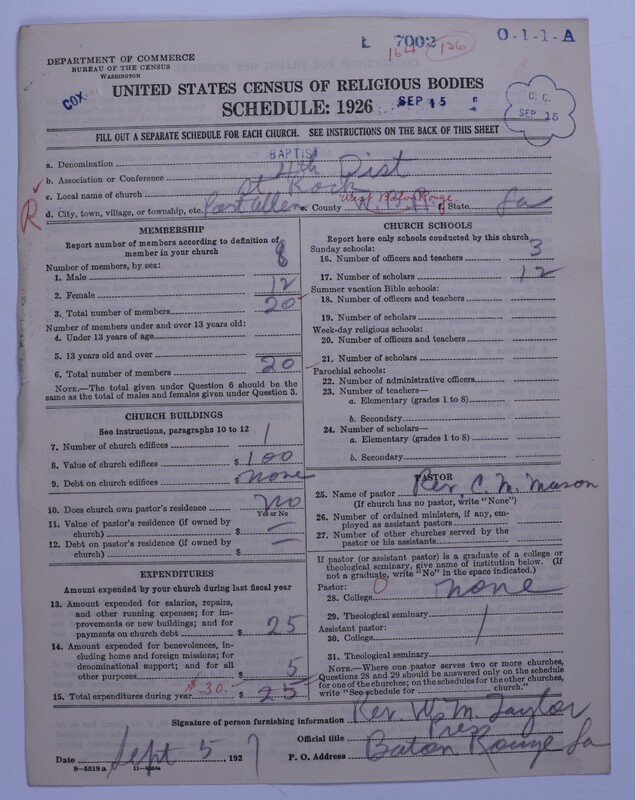 L 7002 164 136 O-1-1-A
DEPARTMENT OF COMMERCE
BUREAU OF THE CENSUS
WASHINGTON
COX
UNITED STATES CENSUS OF RELIGIOUS BODIES
SCHEDULE: 1926
SEP 15
C. C.
SEP 15
FILL OUT A SEPARATE SCHEDULE FOR EACH CHURCH. SEE INSTRUCTIONS ON THE BACK OF THIS SHEET
a. Denomination BAPTIST
b. Association or Conference 4th Dist
c. Local name of church St Rock
R d. City, town, village, or township, etc. Port Allen e. County West Baton Rouge f. State La
MEMBERSHIP
Report number of members according to definition of
member in your church
Number of members, by sex:
1. Male 8
2. Female 12
3. Total number of members 20
Number of members under and over 13 years old:
4. Under 13 years of age
5. 13 years old and over
6. Total number of members 20
NOTE.—The total given under Question 6 should be the
same as the total of males and females given under Question 3.
CHURCH BUILDINGS
See instructions, paragraphs 10 to 12
7. Number of church edifices 1
8. Value of church edifices $ 100
9. Debt on church edifices $ none
10. Does church own pastor's residence? No
Yes or No
11. Value of pastor's residence (if owned by
church) $ —
12. Debt on pastor's residence (if owned by
church) $ —
EXPENDITURES
Amount expended by your church during last fiscal year
13. Amount expended for salaries, repairs,
and other running expenses; for im-
provements or new buildings; and for
payments on church debt $ 25
14. Amount expended for benevolences, in-
cluding home and foreign missions; for
denominational support; and for all
other purposes $ 5
15. Total expenditures during year $30. $ 25
CHURCH SCHOOLS
Report here only schools conducted by this church
Sunday schools:
16. Number of officers and teachers 3
17. Number of scholars 12
Summer vacation Bible schools:
18. Number of officers and teachers
19. Number of scholars
Week-day religious schools:
20. Number of officers and teachers
21. Number of scholars
Parochial schools:
22. Number of administrative officers
23. Number of teachers—
a. Elementary (grades 1 to 8)
b. Secondary
24. Number of scholars—
a. Elementary (grades 1 to 8)
b. Secondary
PASTOR
25. Name of pastor Rev. C. M. Mason
(If church has no pastor, write "None")
26. Number of ordained ministers, if any, em-
ployed as assistant pastors
27. Number of other churches served by the
pastor or his assistants
If pastor (or assistant pastor) is a graduate of a college or
theological seminary, give name of institution below. (If
not a graduate, write "No" in the space indicated.)
Pastor: 0
28. College none
29. Theological seminary
Assistant pastor:
30. College
31. Theological seminary
NOTE.—Where one pastor serves two or more churches,
Questions 28 and 29 should be answered only on the schedule
for one of the churches; on the schedules for the other churches,
write "See schedule for church."
Signature of person furnishing information Rev. W. M. Taylor
Official title Pres
Date Sept 5, 1927 P. O. Address Baton Rouge La
8—5519a